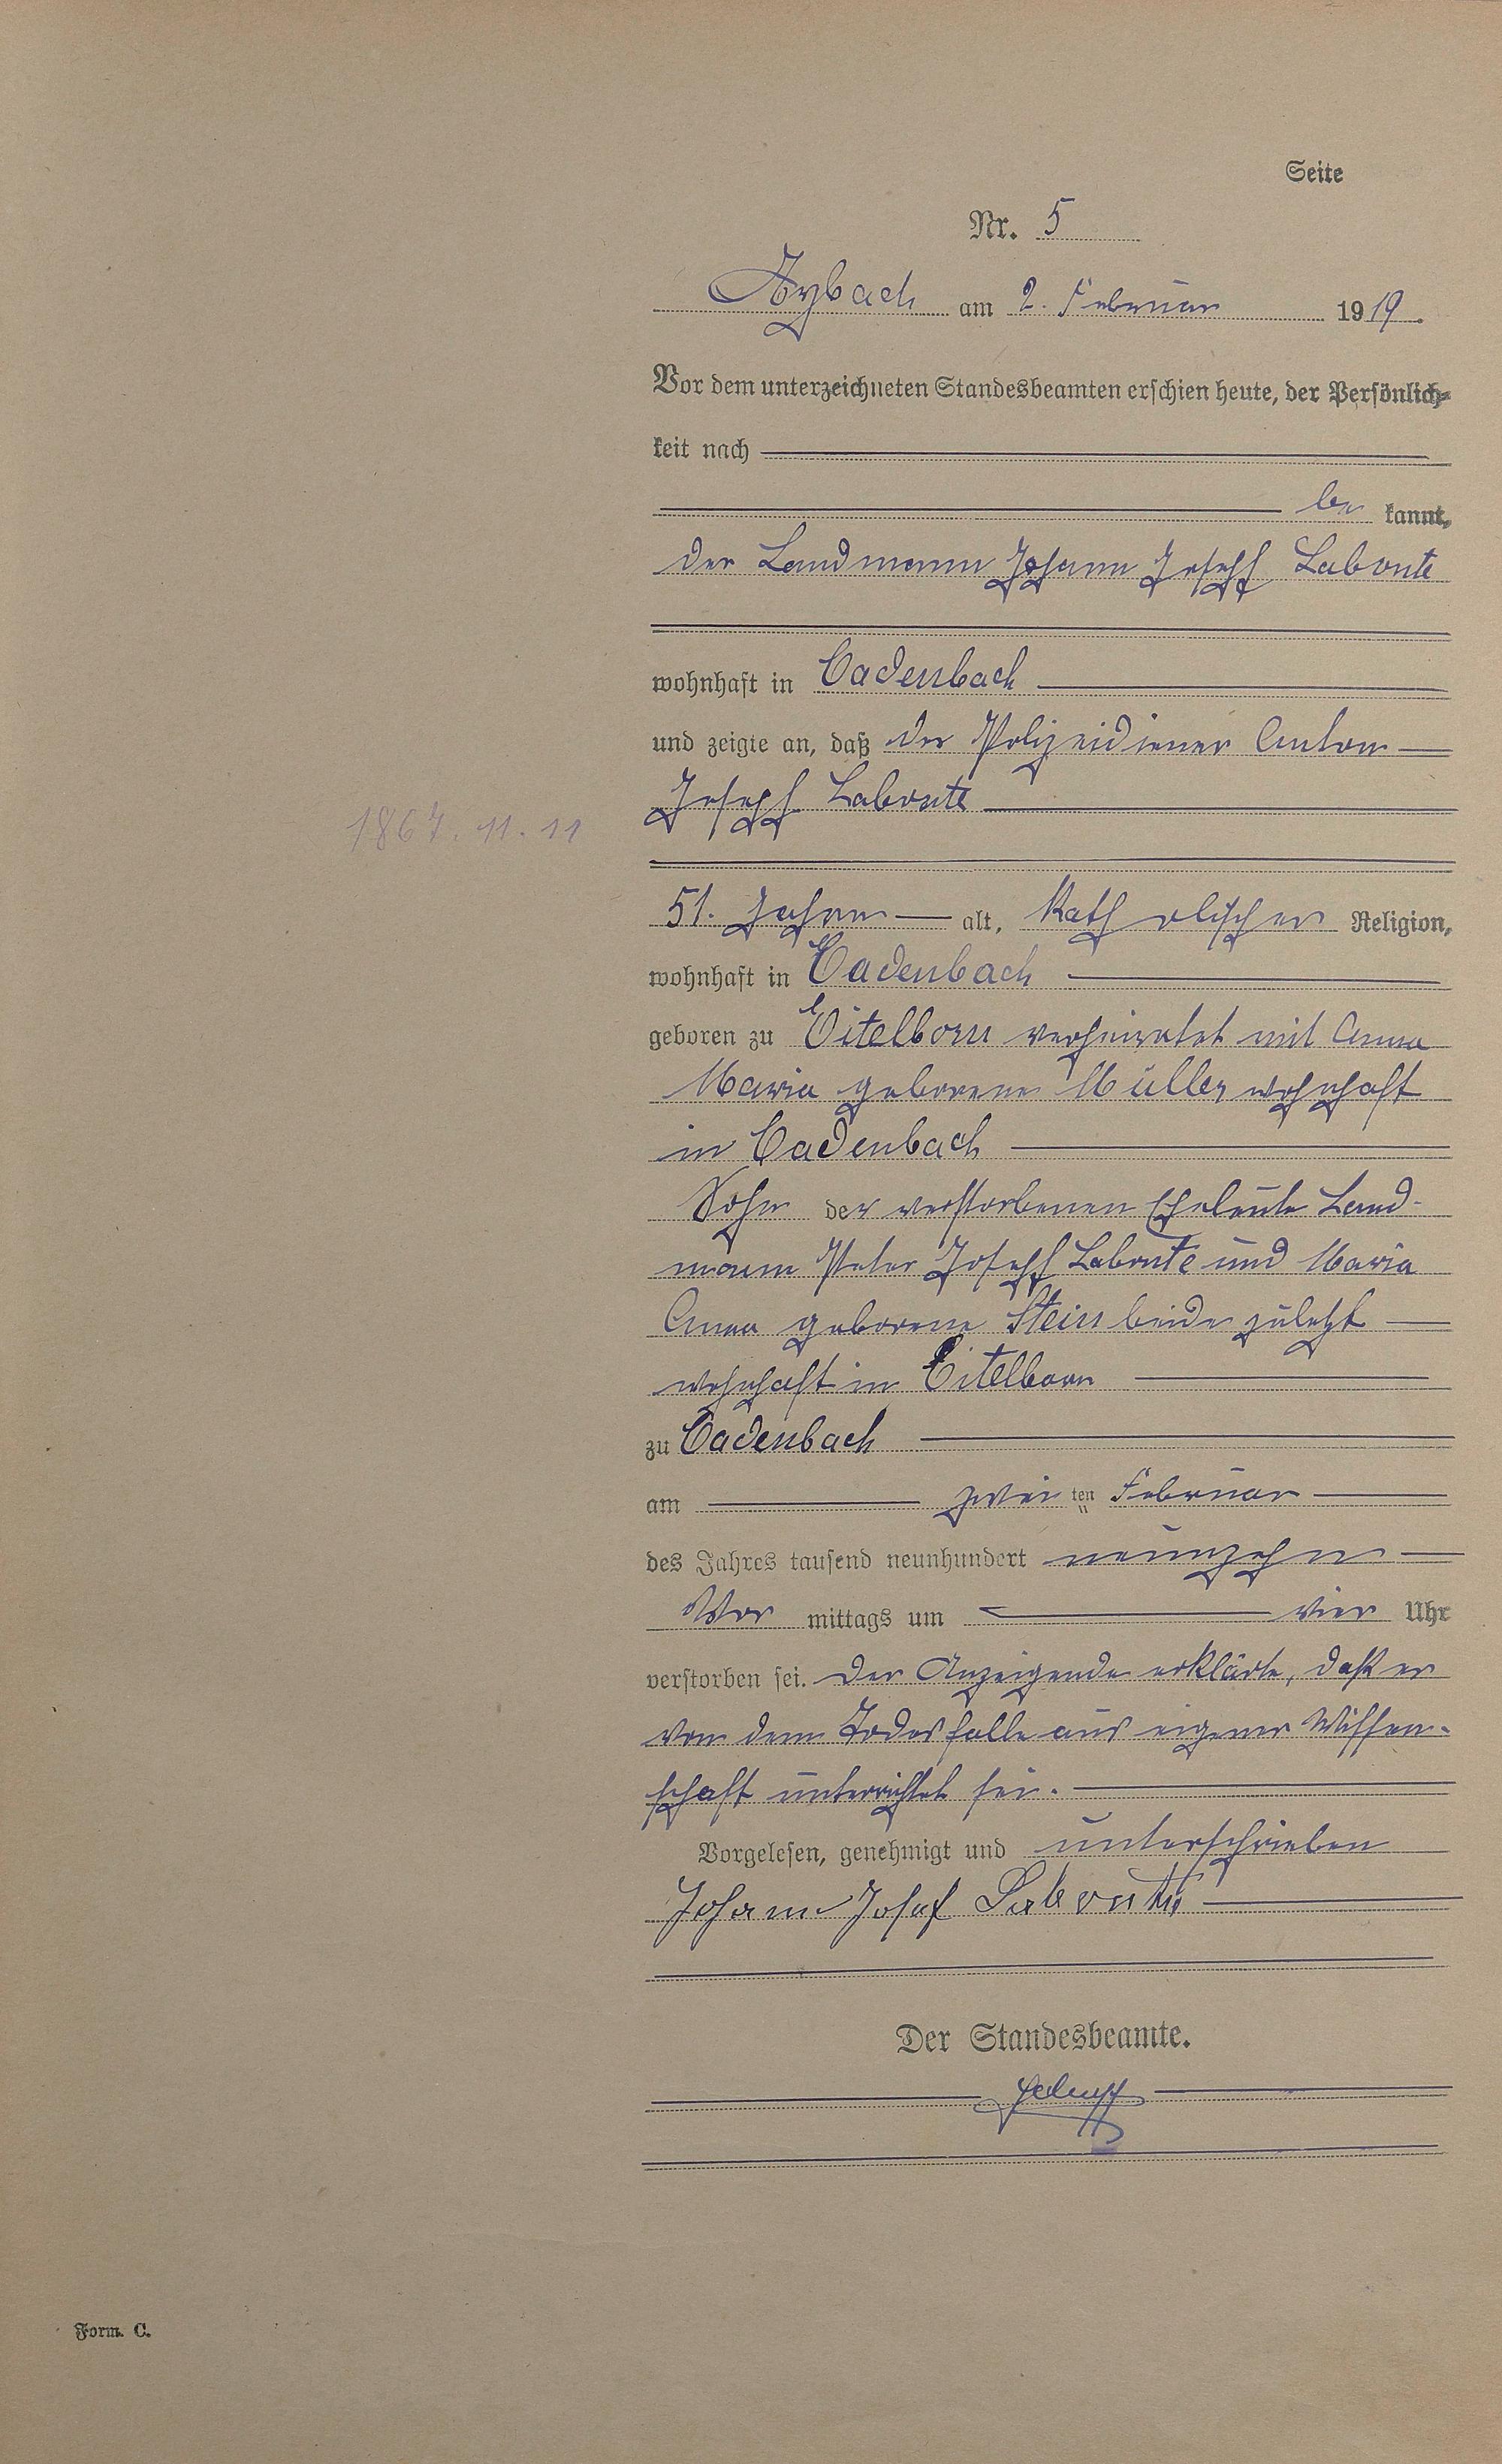 Seite
Nr. 5
Arzbach am 2. Februar 1919.
Vor dem unterzeichneten Standesbeamten erschien heute, der Persönlich-
keit nach
be kannt,
der Landmann Johann Joseph Labonte
wohnhaft in Cadenbach
und zeigte an, daß der Polizeidiener Anton
Joseph Labonte
1867. 11. 11
51. Jahre alt, Katholischer Religion,
wohnhaft in Cadenbach
geboren zu Eitelborn verheiratet mit Anna
Maria geborene Müller wohnhaft
in Cadenbach
Sohn der verstorbenen Eheleute Land-
mann Peter Joseph Labonte und Maria
Anna geborene Stein beide zuletzt
wohnhaft in Eitelborn
zu Cadenbach
am zwei ten Februar
des Jahres tausend neunhundert neunzehn
Vor mittags um vier Uhr
verstorben sei. Der Anzeigende erklärte, daß er
von dem Todesfalle aus eigener Wissen-
schaft unterrichtet sei.
Vorgelesen, genehmigt und unterschrieben
Johann Josef Labonte
Der Standesbeamte.
Form. C.